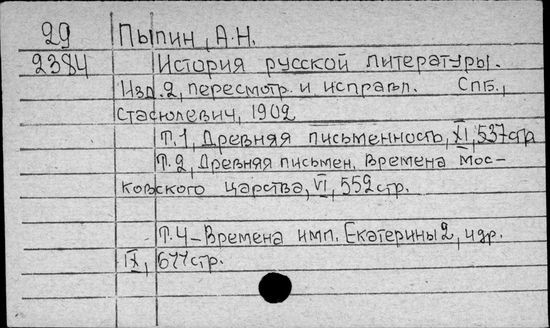 29 Пыпин, А.Н.
2384 История русской литературы.
Изд. 2, пересмотр. и исправл. Спб.,
Стасюлевич, 1902
Т.1, Древняя письменность, XI, 537стр
Т.2, Древняя письмен. Времена Мос-
ковского царства, VI, 552стр.
Т.4-Времена имп. Екатерины 2, идр.
IX, 677стр.